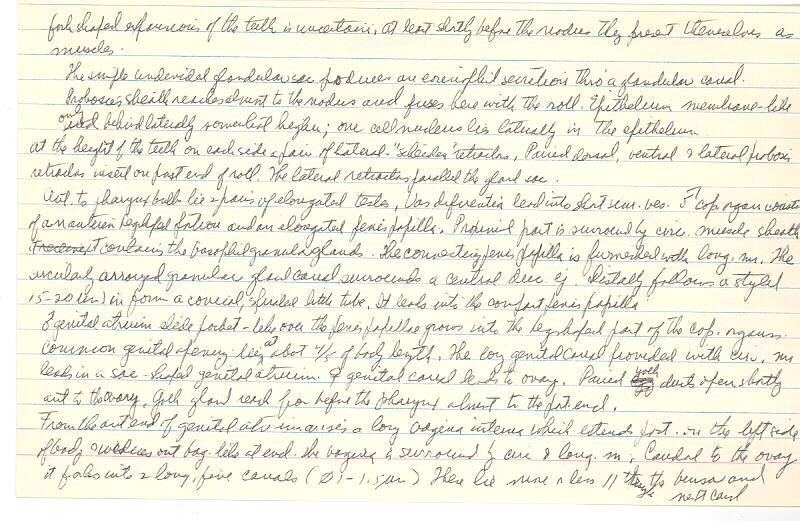 fork shaped expansions of the teeth is uncertain, at least shortly before the nodus they present themselves as
muscles.
The simple undivided glandular sac produces an eosinophil secretion thro a glandular canal.
Proboscis sheath reaches almost to the nodus and fuses here with the roll. Epithelium membrane-like
only and behind laterally somewhat higher; one cell nucleus lies laterally in the epithelium.
at the height of the teeth on each side a pair of lateral "scheiden" retractors, Paired dorsal, ventral & lateral proboscis
retractors insert on post end of roll. The lateral retractors parallel the gland sac.
Ant. to pharynx bulb lie 2 pairs of elongated testes, Vas deferentia lead into short sem. ves. ♂ cop. organ consists
of an anterior egg shaped portion and an elongated penis papilla. Proximal part is surround by circ. muscle sheath
contains the basophil granular glands. The connecting penis papilla is furnished with long. m. The
circularly arrayed granular gland canal surrounds a central duc. ej. Distally follows a stylet
15-20 um) in form a conical, spiraled little tube. It leads into the penis papilla
♂ genital atrium slide pocket-like over the penis papillae grows into the egg shaped part of the cop. organs.
Common genital opening lies at about 4/5 of body length. The long genital canal provided with circ. m
leads in a sac-shaped genital atrium. ♀ genital canal leads to ovary. Paired yolk ducts open shortly
ant to the ovary. Yolk gland reach from before the pharynx almost to the post end.
From the ant end of genital atrium arises a long vagina interna which extends post. on the left side
of body & widens out bag-like at end. The vagina is surround by circ & long. m. Caudal to the ovary
it forks into 2 long, fine canals (Ø 1-1.5 um) There lie more or less // the bursa and
next canal